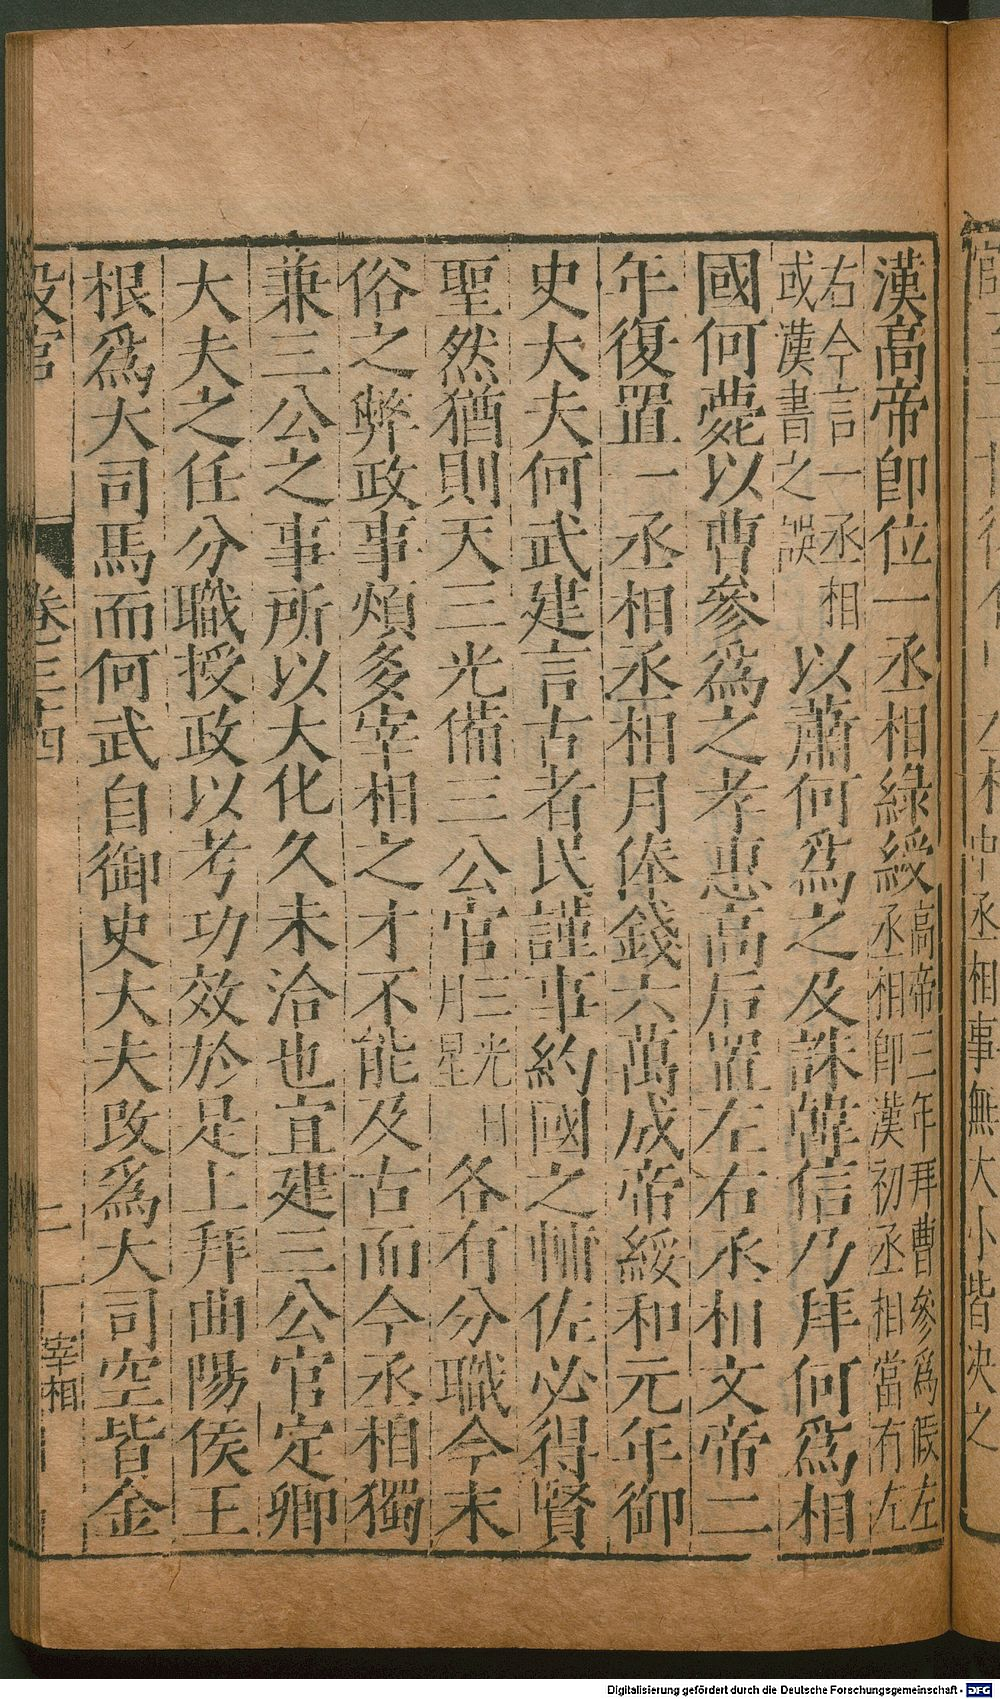 漢高帝卽位一丞相綠綬高帝三年拜曹參爲假左丞相卽漢初丞相當有左
右今言一丞相或漢書之誤以蕭何爲之及誅韓信乃拜何爲相
國何薨以曹參爲之孝惠高后置左右丞相文帝二
年復置一丞相丞相月俸錢六萬成帝綏和元年御
史大夫何武建言古者民謹事約國之輔佐必得賢
聖然猶則天三光備三公官三光日月星各有分職今末
俗之弊政事煩多宰相之才不能及古而今丞相獨
兼三公之事所以大化久未洽也宜建三公官定卿
大夫之任分職授政以考功效於是上拜曲陽侯王
根爲大司馬而何武自御史大夫改爲大司空皆金
設官 卷三十四 二 宰相
中丞相事無大小皆決之
Digitalisierung gefördert durch die Deutsche Forschungsgemeinschaft - DFG